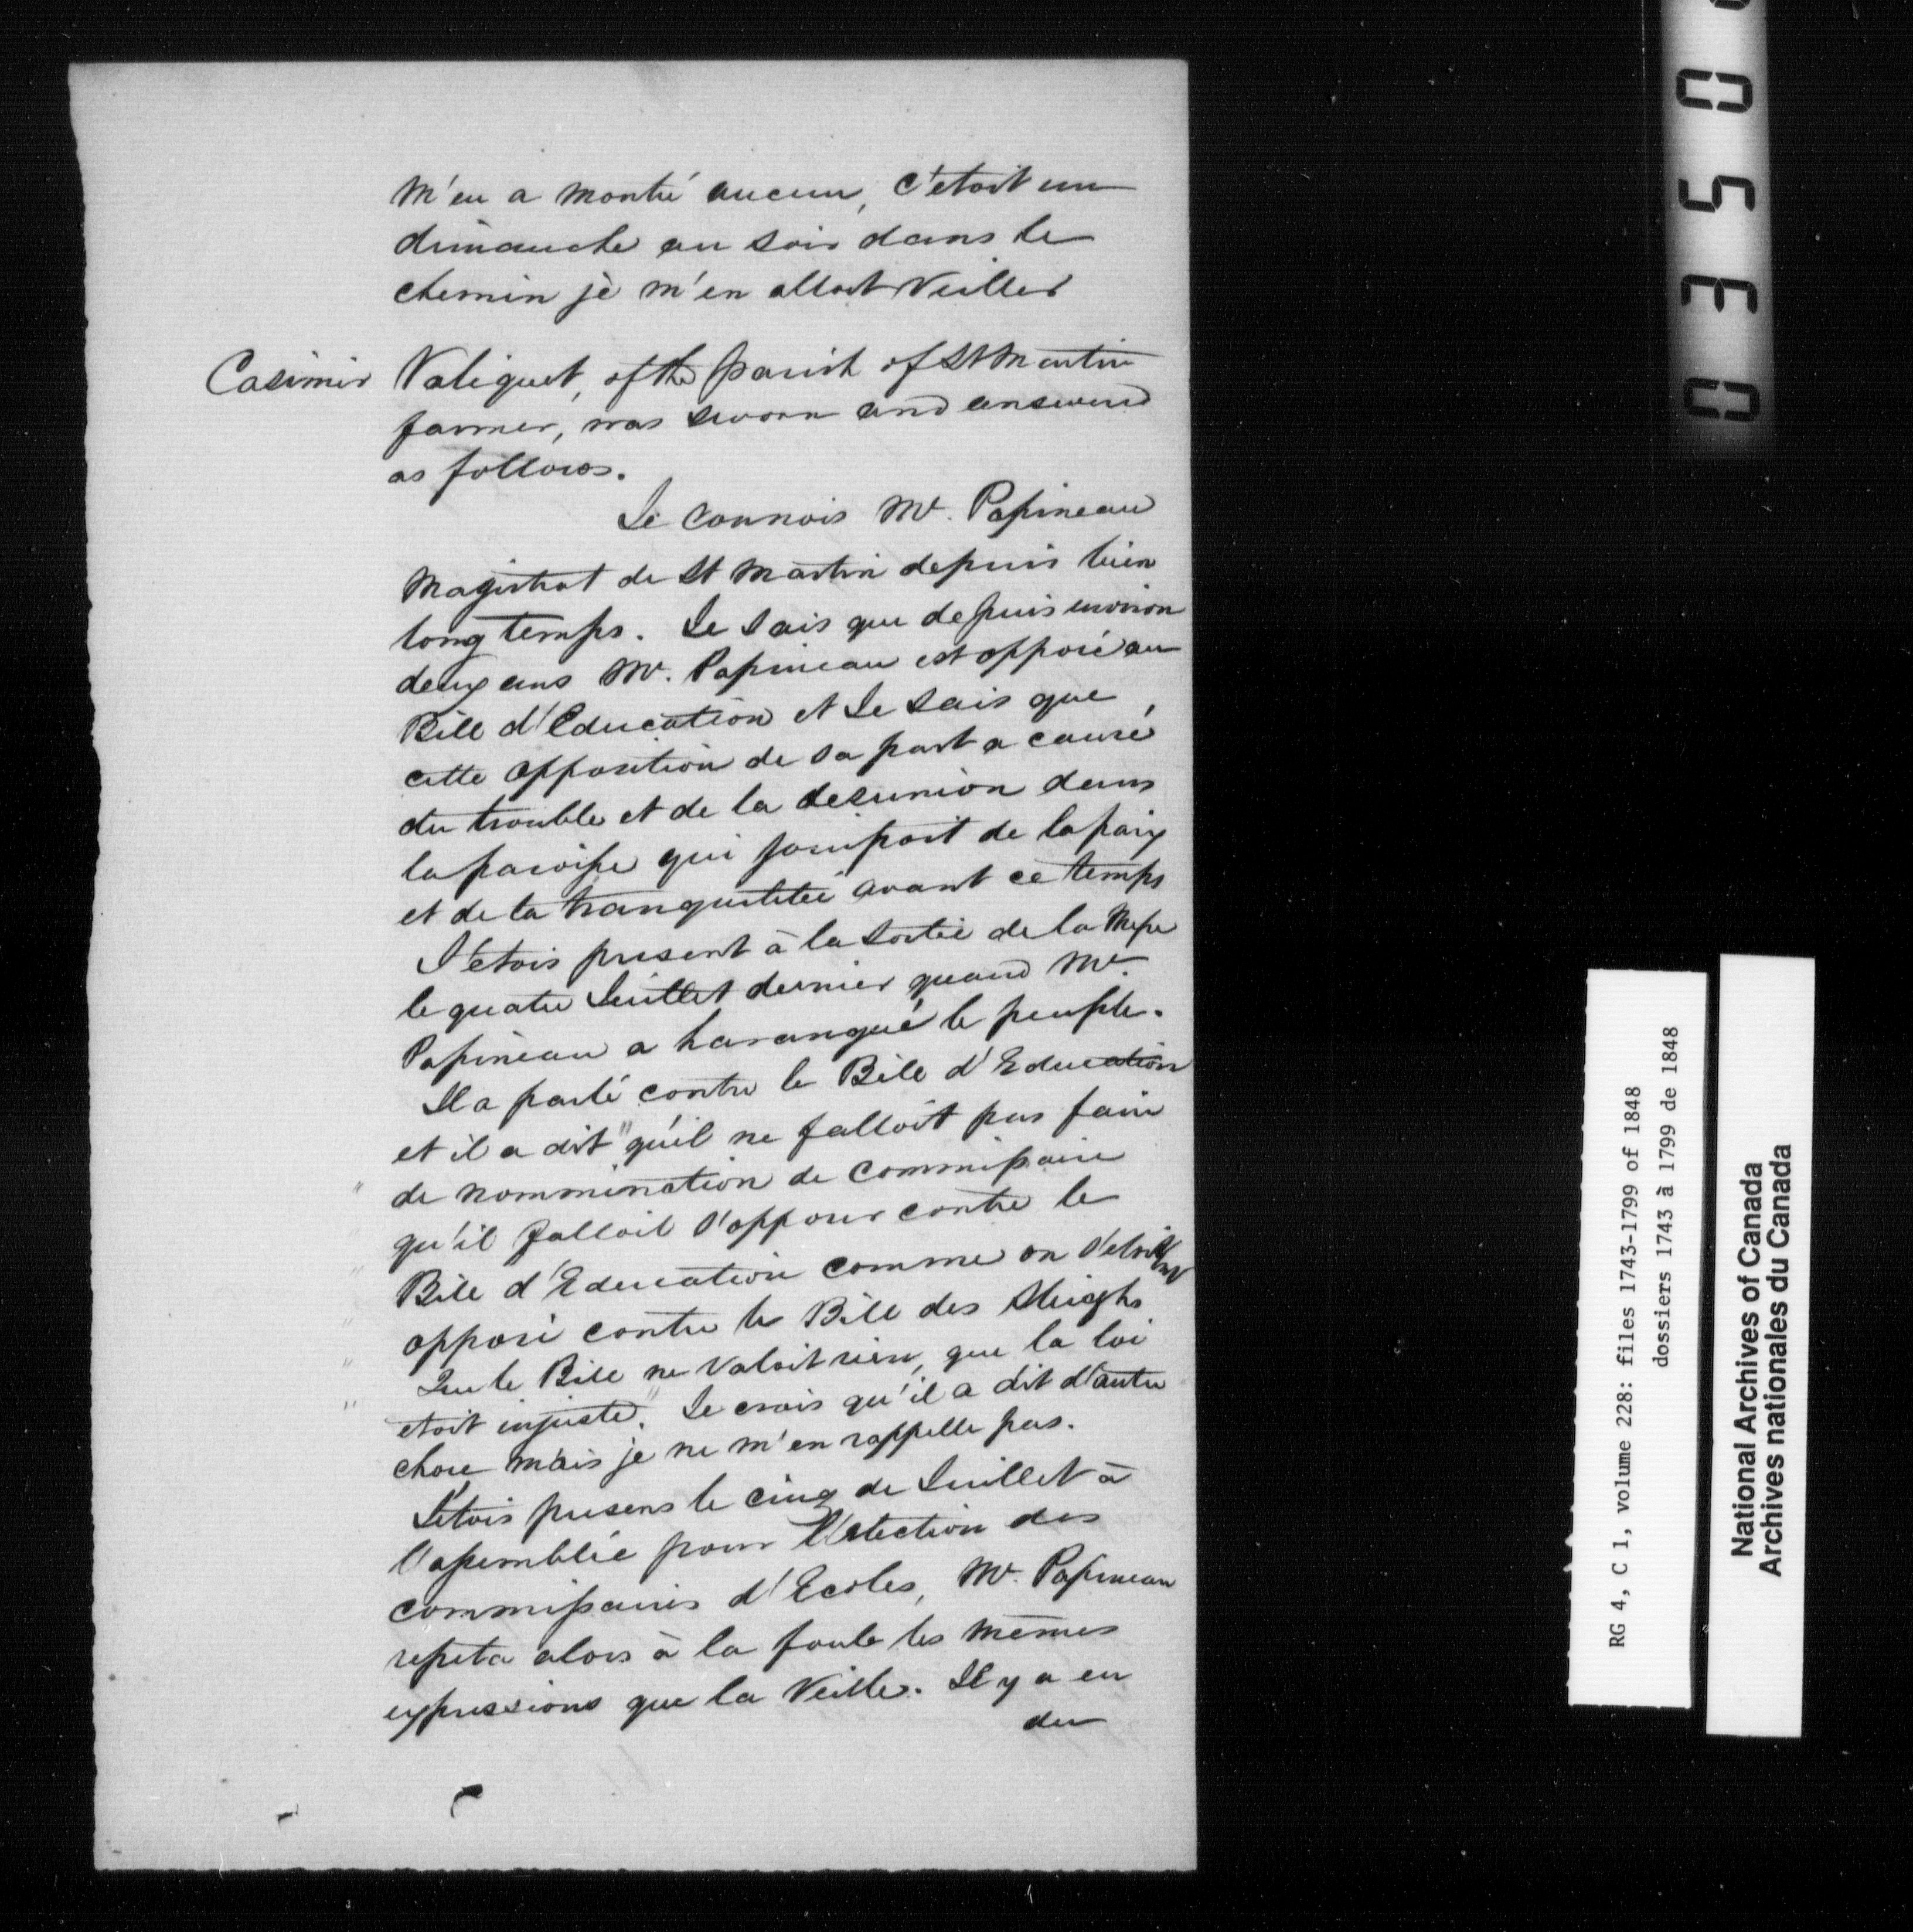 m'en a montré aucun, c'etoit un
dimanche au soir dans le
chemin je m'en alloit veiller
Casimir Valiquet, of the parish of St Martin
farmer, was sworn and answered
as follows.
Je connois Mr. Papineau
Magistrat de St Martin depuis bien
long temps. Je sais que depuis environ
deux ans Mr. Papineau est opposé au
Bill d'Education et Je sais que
cette opposition de sa part a causé
du trouble et de la desunion dans
la paroisse qui jouissoit de la paix
et de la tranquilitée avant ce temps
J'etois present à la sortie de la Messe
le quatre Juillet dernier quand Mr.
Papineau a harangué le peuple.
Il a parlé contre le Bill d'Education
et il a dit "qu'il ne falloit pas faire
" de nommination de Commissaire
qu'il falloit s'opposer contre le
" Bill d'Education comme on s'etoit
" opposé contre le Bill des Sleighs
" Que le Bill ne valoit rien, que la loi
" etoit injuste." Je crois qu'il a dit d'autre
chose mais je ne m'en rappelle pas.
J'etois presens le cinq de Juillet à
l'assemblée pour l'election des
commissaires d'Ecoles, Mr. Papineau
repeta alors à la foule les mêmes
expressions que la veille. Il y a eu
du
0350
RG 4, C 1, volume 228: files 1743-1799 of 1848
dossiers 1743 à 1799 de 1848
National Archives of Canada
Archives nationales du Canada